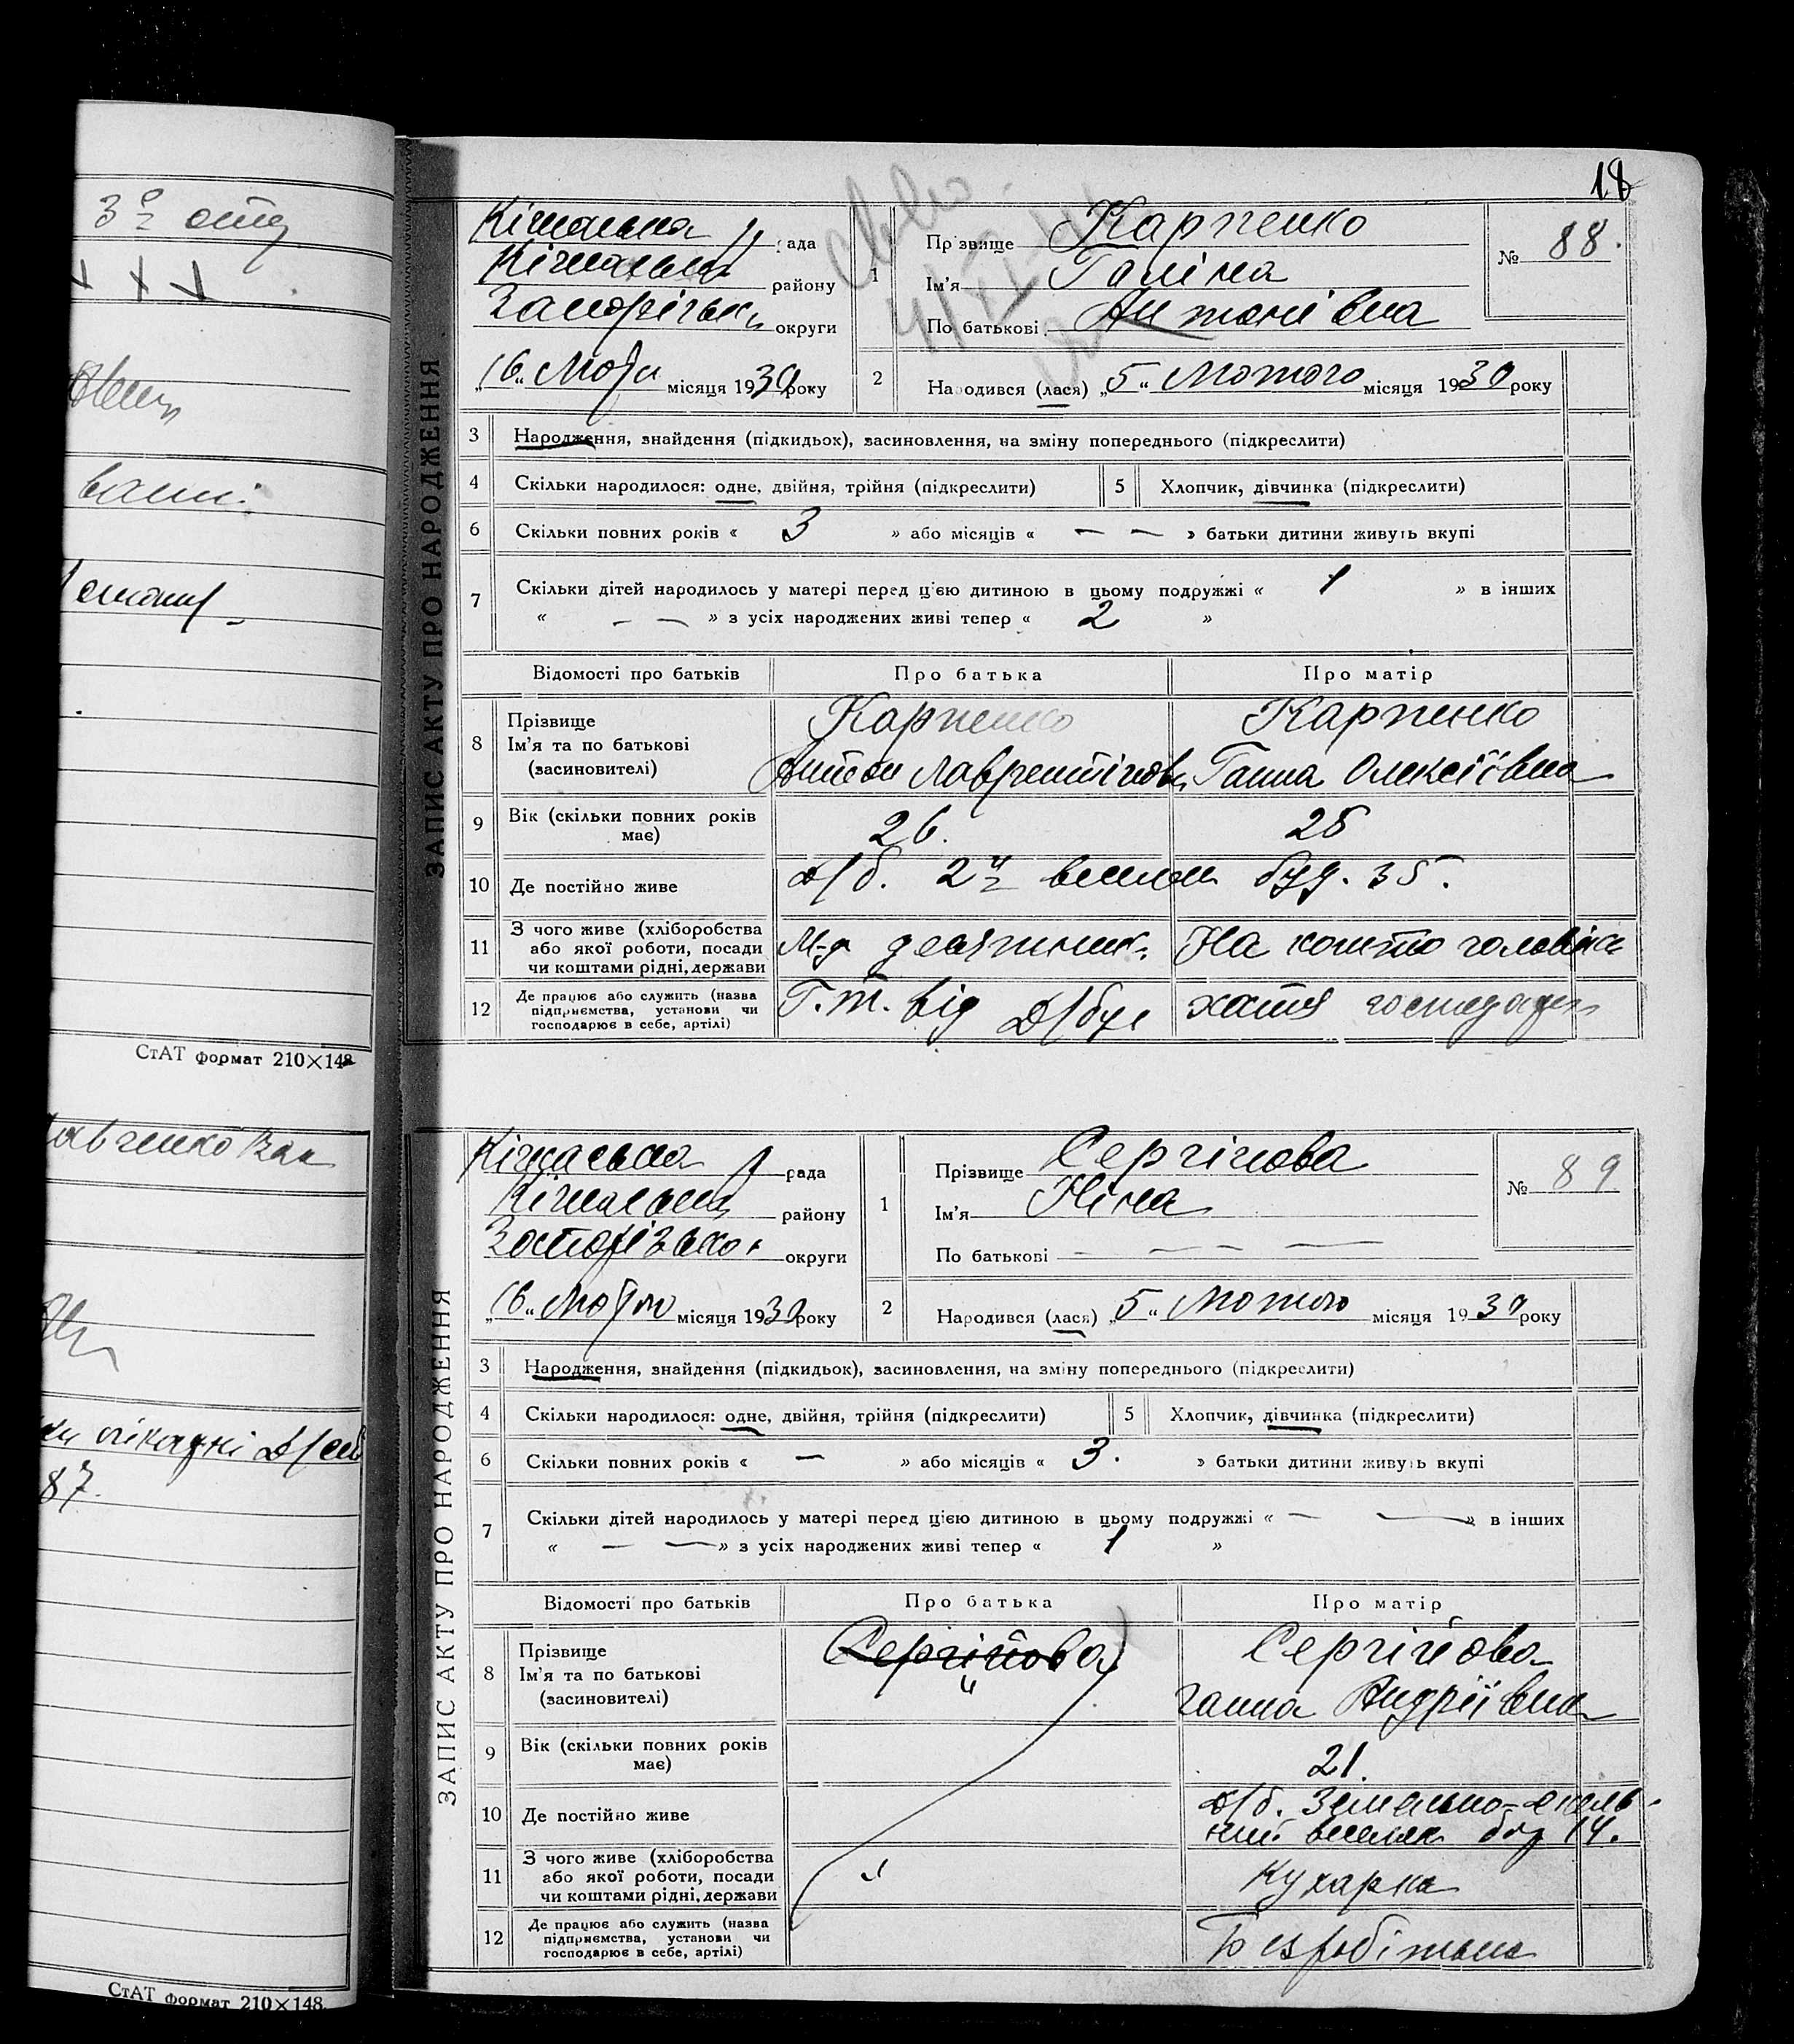 3 
СтАТ формат 210×148
87.
СтАТ формат 210×148
18
ЗАПИС АКТУ ПРО НАРОДЖЕННЯ
Кічкаська рада
району
Запорізьк округи
„16“ Лютого місяця 1930 року
1
Прізвище Карпенко
Ім’я Галіна
По батькові Антонівна
№ 88.
2 Народився (лася) „5“ Лютого місяця 1930 року
3 Народження, знайдення (підкидьох), засиновлення, на зміну попереднього (підкреслити)
4 Скільки народилося: одне, двійня, трійня (підкреслити) 5 Хлопчик, дівчинка (підкреслити)
6 Скільки повних років « 3 » або місяців « — — » батьки дитини живуть вкупі
7 Скільки дітей народилось у матері перед цією дитиною в цьому подружжі « 1 » в інших
« — — » з усіх народжених живі тепер « 2 »
Відомості про батьків Про батька Про матір
8 Прізвище Карпенко Карпенко
Ім’я та по батькові
(засиновителі) Антон Лаврентійов. Ганна Олексіївна
9 Вік (скільки повних років має) 26. 25
10 Де постійно живе 2 буд. 35.
11 З чого живе (хліборобства
або якої роботи, посади
чи коштами рідні, держави
М-д десятник. На кошти чоловіка
12 Де працює або служить (назва
підприємства, установи чи
господарює в себе, артілі)
Г. т. від Д/буд хатня господарк
ЗАПИС АКТУ ПРО НАРОДЖЕННЯ
Кічкаська рада
району
округи
„16“ Лютого місяця 1930 року
1
Прізвище Сергійова
Ім’я Ніна
По батькові — — — —
№ 89
2 Народився (лася) „5“ Лютого місяця 1930 року
3 Народження, знайдення (підкидьок), засиновлення, на зміну попереднього (підкреслити)
4 Скільки народилося: одне, двійня, трійня (підкреслити) 5 Хлопчик, дівчинка (підкреслити)
6 Скільки повних років « — » або місяців « 3. » батьки дитини живуть вкупі
7 Скільки дітей народилось у матері перед цією дитиною в цьому подружжі « — — » в інших
« — — » з усіх народжених живі тепер « 1 »
Відомості про батьків Про батька Про матір
8 Прізвище Сергійова Сергійова
Ім’я та по батькові
(засиновителі) Ганна Андріївна
9 Вік (скільки повних років має) 21.
10 Де постійно живе Д/б.
14.
11 З чого живе (хліборобства
або якої роботи, посади
чи коштами рідні, держави
Кухарка
12 Де працює або служить (назва
підприємства, установи чи
господарює в себе, артілі)
Безробітна